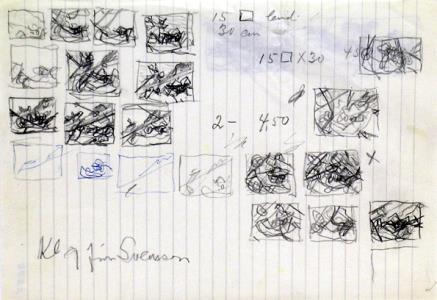 15 □ land.
30 cm
15 □ X 30 450
2 - 450
X
Jim Svenson